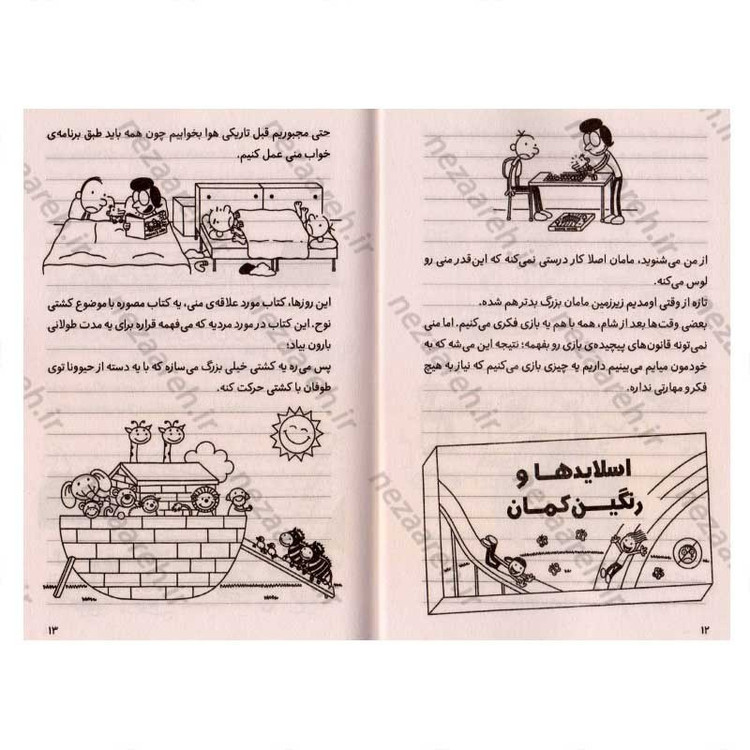 از من می‌شنوید، مامان اصلا کار درستی نمی‌کنه که این‌قدر منی رو
لوس می‌کنه.
تازه از وقتی اومدیم زیرزمین مامان بزرگ بدتر هم شده.
بعضی وقت‌ها بعد از شام، همه با هم یه بازی فکری می‌کنیم. اما منی
نمی‌تونه قانون‌های پیچیده‌ی بازی رو بفهمه؛ نتیجه این می‌شه که یه
خودمون میایم می‌بینیم داریم یه چیزی بازی می‌کنیم که نیاز به هیچ
فکر و مهارتی نداره.
اسلایدها و
رنگین‌کمان
۱۲
حتی مجبوریم قبل تاریکی هوا بخوابیم چون همه باید طبق برنامه‌ی
خواب منی عمل کنیم.
این روزها، کتاب مورد علاقه‌ی منی، یه کتاب مصوره با موضوع کشتی
نوح. این کتاب در مورد مردیه که می‌فهمه قراره برای یه مدت طولانی
بارون بیاد؛
پس می‌ره یه کشتی خیلی بزرگ می‌سازه که با یه دسته از حیوونا توی
طوفان با کشتی حرکت کنه.
۱۳
nezaareh.ir